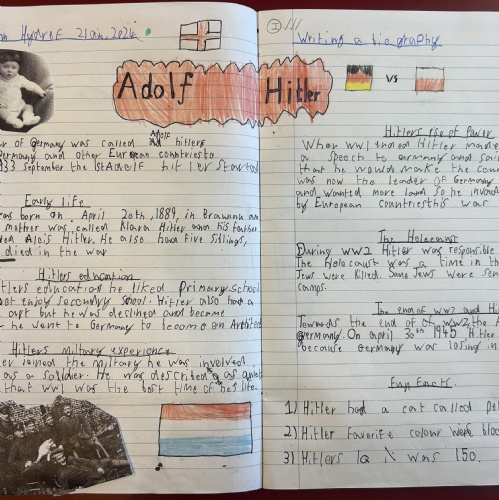 21 Jan, 2024
Adolf
of Germany was called Adolf hitlers
Germany and other European countries to
33 September the 1st Adolf hitler started
Early life
was born on April 20th, 1889, in
mother was called Klara Hitler and his father
Alois Hitler. He also had five siblings,
died in the war
Hitlers education
Hitlers education he liked Primary school
not enjoy secondry school. Hitler also had a
art but he was declined and became
he went to Germany to become an
Hitlers military experience
joined the military he was involved
as a soldier. He was described as a quiet
that WW1 was the best time of hes life.
Writing a biography
Hitler
vs
Hitlers rise of Power
When WW1 ended Hitler
a speech to Germany and said
that he would make the
was now the leader of Germany
and wanted more land so he
by European countries this was
The Holocaust
During WW2 Hitler was responsible
The Holocaust was a time in
Jews were killed. Some Jews were sent
camps.
The end of WW2 and
Towards the end of of WW2, the
Germany. On april 30th 1945 Hitler
because Germany was losing in
Fun Facts
1) Hitler had a cat called
2) Hitler favorite colour were
3) Hitlers IQ was 150.